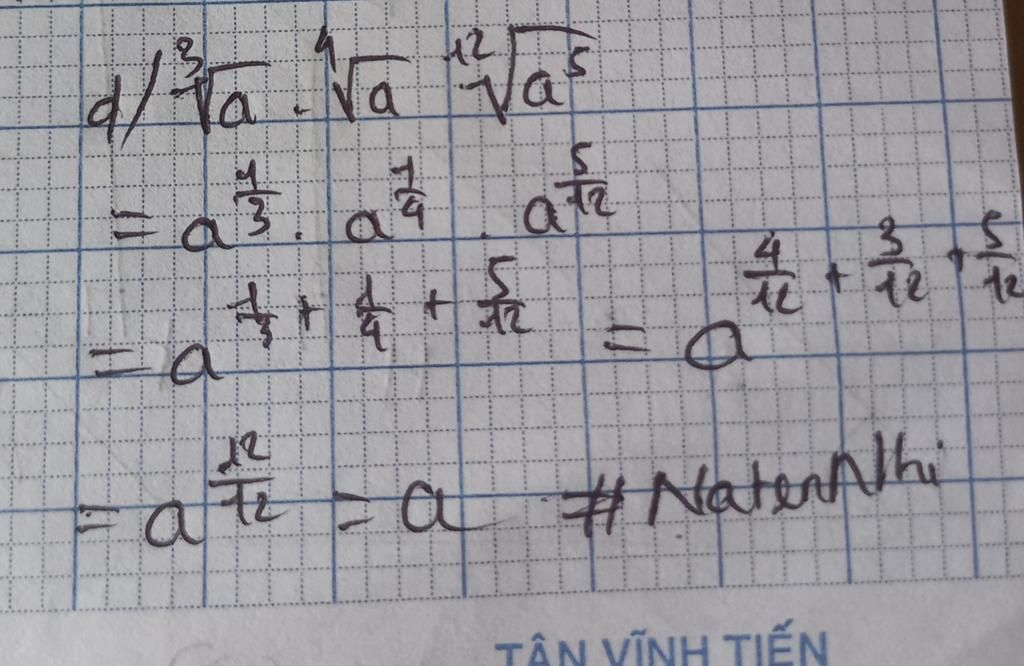 d/ ∛a . ∜a ¹²√a⁵
= a^(1/3) . a^(1/4) . a^(5/12)
= a^(1/3 + 1/4 + 5/12) = a^(4/12 + 3/12 + 5/12)
= a^(12/12) = a #NatenNhi
TÂN VĨNH TIẾN